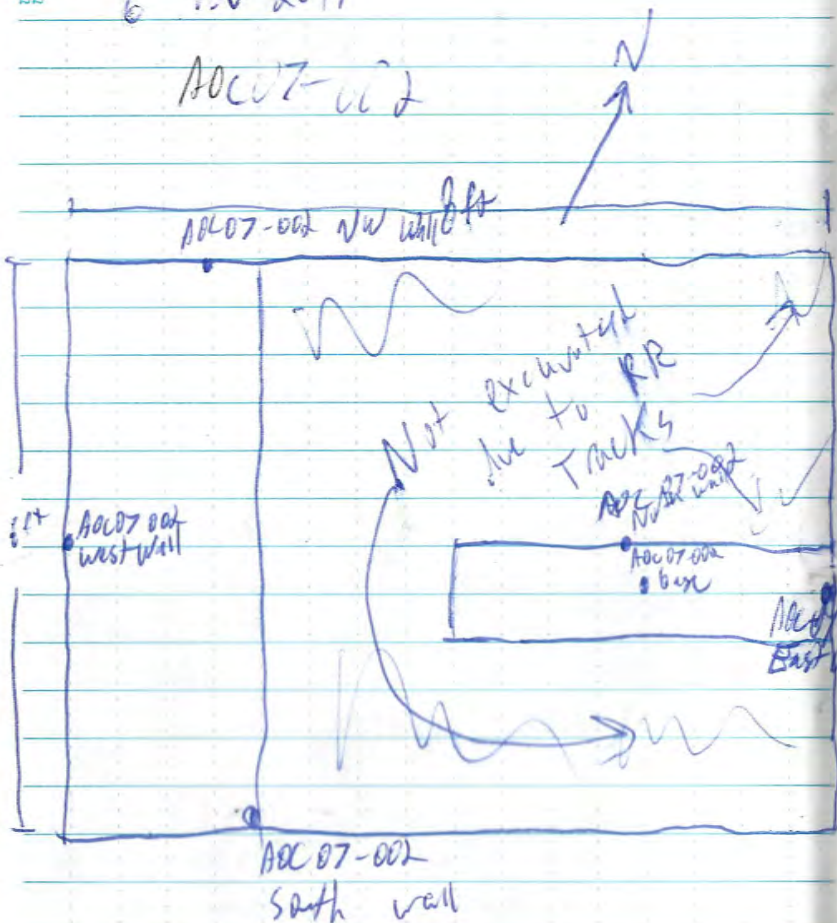 6
AOC07-002
N
8 ft
AOC07-002 NW wall
Not excavated
due to RR
Tracks
AOC07-002
North wall
AOC07 002
West Wall
AOC07 002
base
East
AOC 07-002
South wall